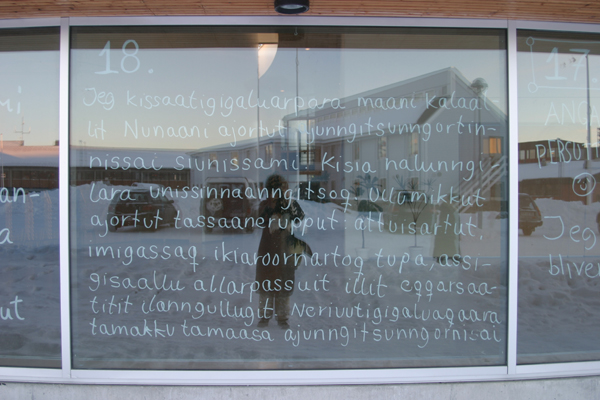 18.
Jeg kissaatigigaluarpara maani kalaa
lit Nunaani ajortut ajunngitsunngortin-
nissai siunissami. Kisia nalunngi
lara unissinnaanngitsoq. Ulamikkut
ajortut tassaanerupput attuisartut,
imigassaq. ikiaroornartoq tupa, assi-
gisaallu allarpassuit illit eqqarsaa-
titit ilanngullugit. Neriuutigigaluaqaara
tamakku tamaasa ajunngitsunngornissai
17.
PERSU
Jeg
bliver
mi
an-
a
ut